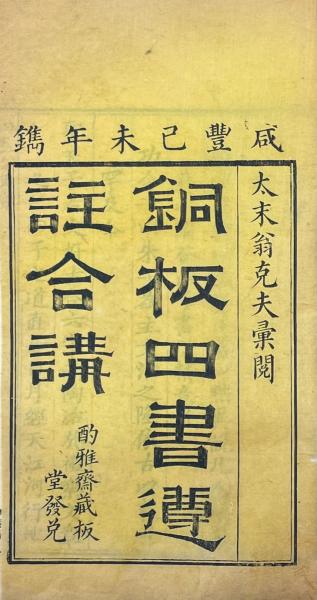 咸豐己未年鐫
太末翁克夫彙閱
銅板四書遵
註合講
酌雅齋藏板
堂發兌